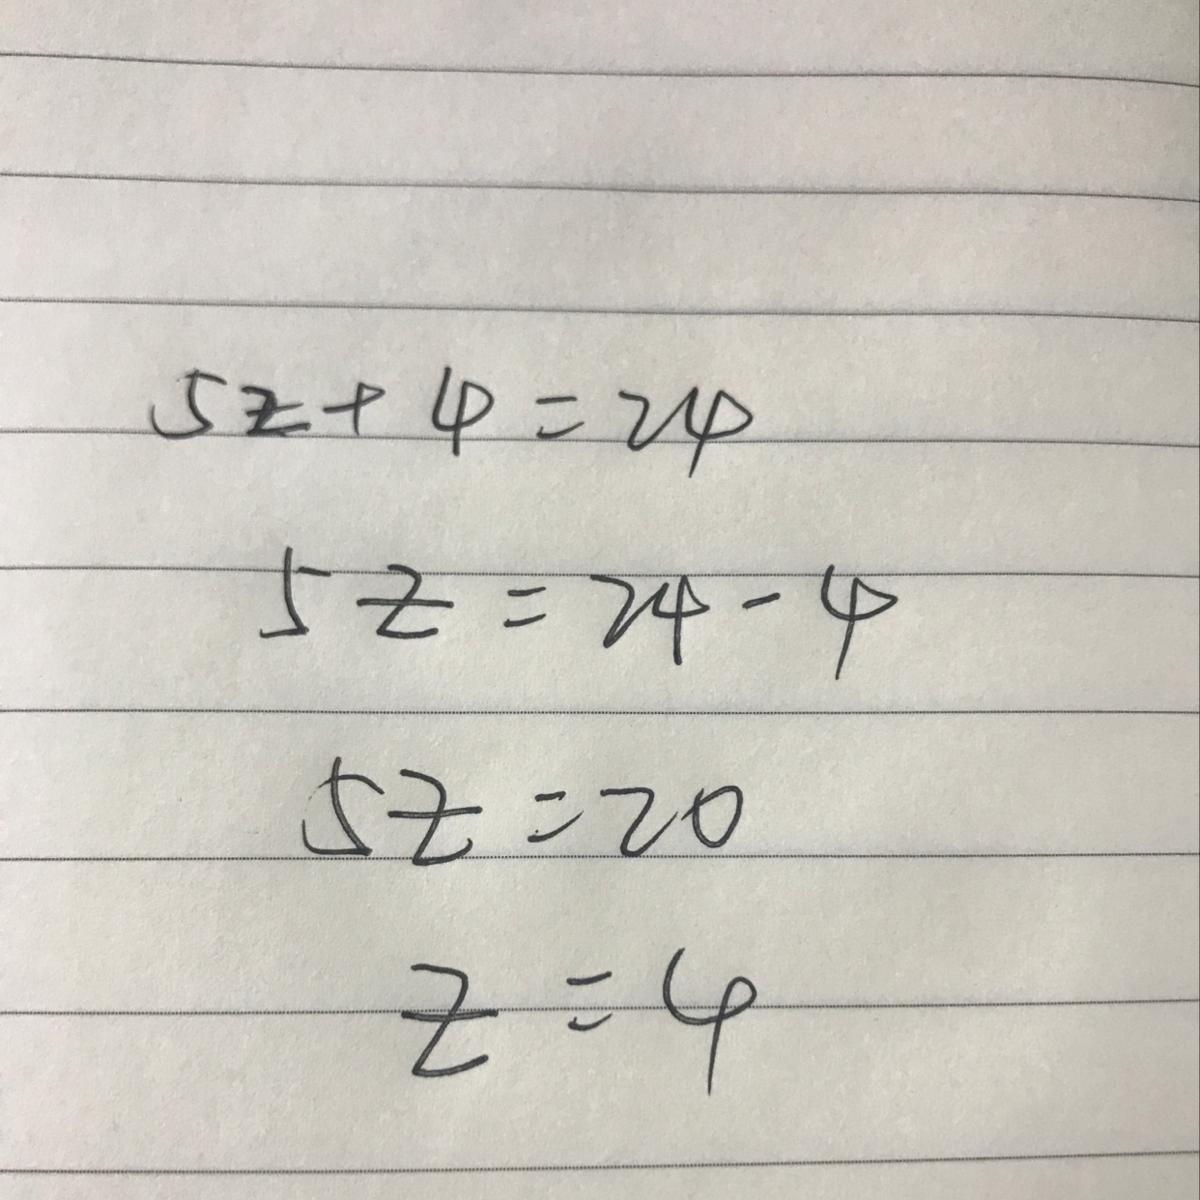 5z + 4 = 24
5z = 24 - 4
5z = 20
z = 4